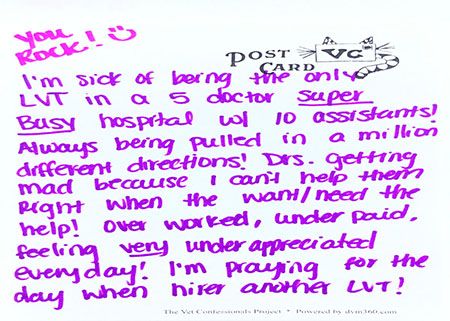 You
Rock! :)
POST
CARD
VC
I'm sick of being the only
LVT in a 5 doctor super
Busy hospital w/ 10 assistants!
Always being pulled in a million
different directions! Drs. getting
mad because I can't help them
Right when the want/need the
help! Over worked, under paid,
feeling very under appreciated
everyday! I'm praying for the
day when hirer another LVT!
The Vet Confessionals Project * Powered by dvm360.com